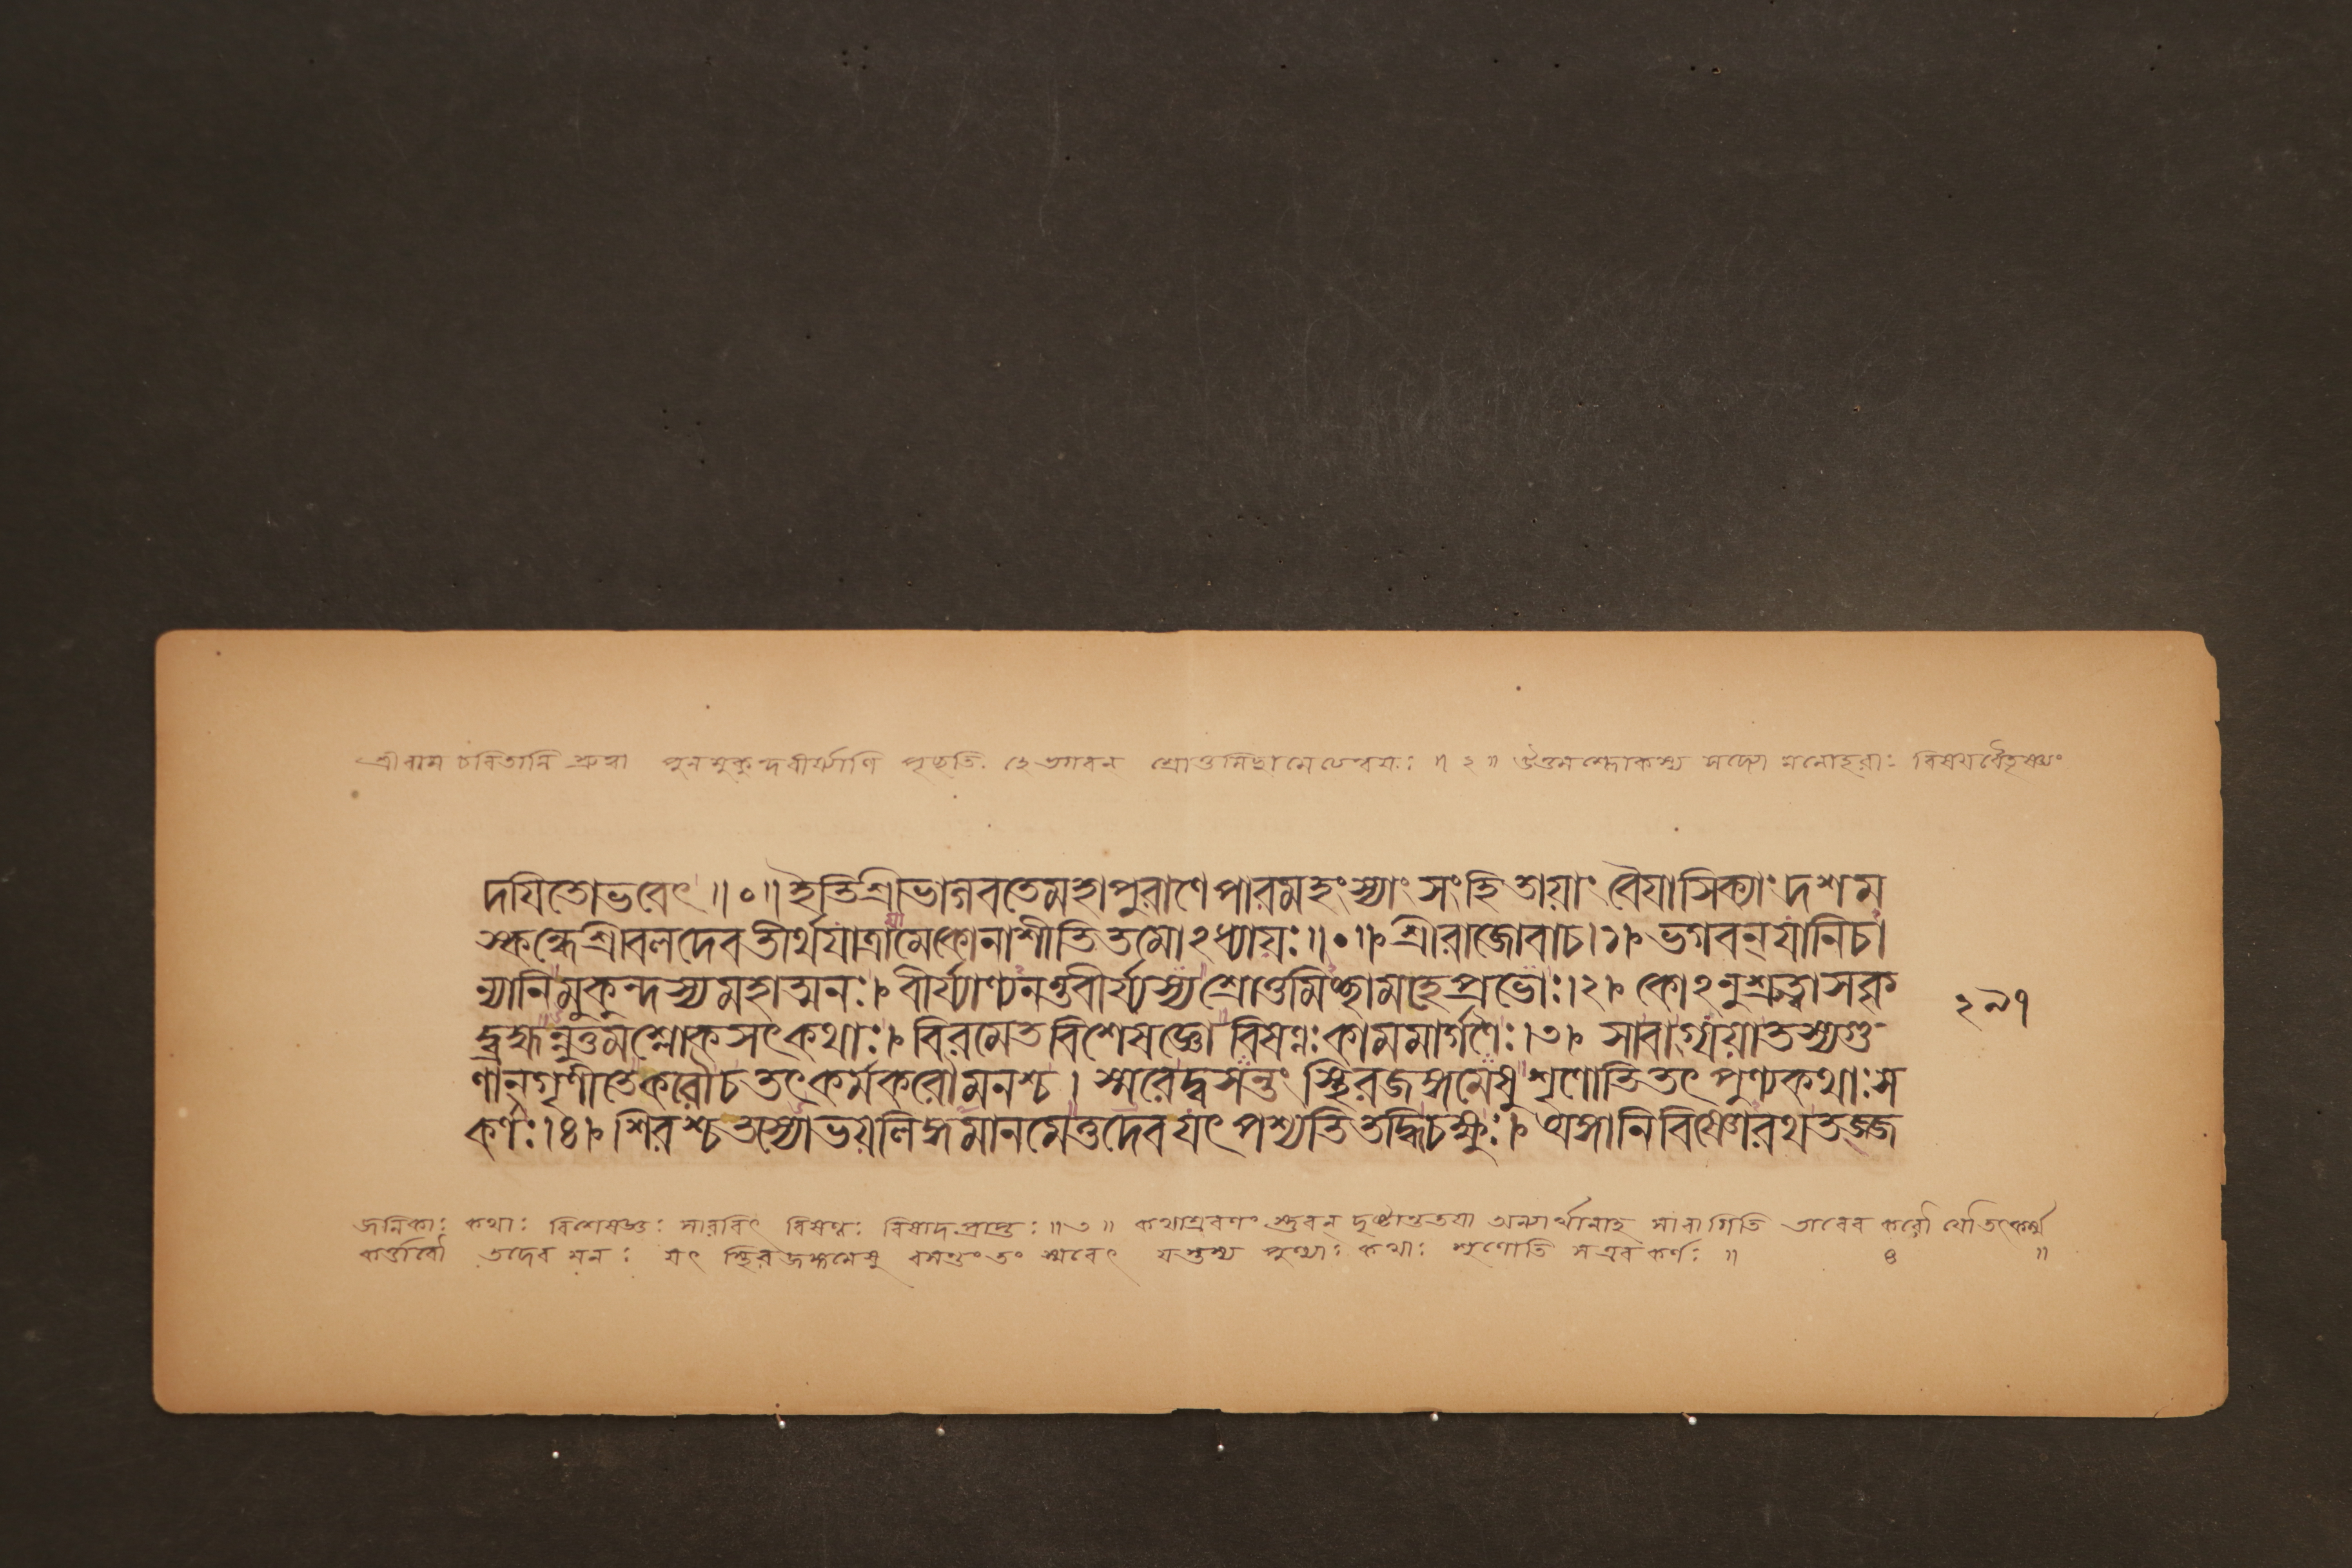 শ্রীরাম চরিতানি শ্রুত্বা পুনর্মুকুন্দবীর্য্যাণি পৃচ্ছতি হে ভগবন শ্রোতুমিছামো ॥ ২ ॥ উত্তমশ্লোকস্য সদ্যো মনোহরাঃ বিষয়বৈতৃষ্ণ্যং
দযিতোভবেৎ ॥০॥ ইতিশ্রীভাগবতেমহাপুরাণেপারমহংস্যাং সংহিতায়াং বৈযাসিক্যাং দশম
স্কন্ধেশ্রীবলদেবতীর্থযাত্রামেকোনাশীতিতমোঽধ্যায়ঃ॥০॥ শ্রীরাজোবাচ।১। ভগবন্ যানিচা
ন্যানিমুকুন্দস্যমহাত্মনঃ। বীর্য্যাণ্যনন্তবীর্য্যস্যশ্রোতুমিচ্ছামহেপ্রভোঃ।২। কোঽনুশ্রুত্বাসকৃ
দ্ব্রহ্মন্নুত্তমশ্লোকসৎকথাঃ। বিরমেতবিশেষজ্ঞো বিষণ্নঃকামমার্গণৈঃ।৩। সাবাগ্যয়াতস্যগু-
ণান্ গৃণীতেকরৌচতৎকর্মকরৌমনশ্চ। স্মরেদ্বসন্তং স্থিরজঙ্গমেষুশৃণোতিতৎ পুণ্যকথাঃস
কর্ণঃ।৪। শিরশ্চতস্যোভয়লিঙ্গমানমেত্তদেবযৎ পশ্যতিতদ্ধিচক্ষুঃ। অঙ্গানিবিষ্ণোরথতজ্জ
২৯৭
জনিকাঃ কথাঃ বিশেষজ্ঞঃ সারবিৎ বিষণ্নঃ বিষাদপ্রাপ্তঃ ॥৩॥ কথাশ্রবণং স্তুবন্ দৃষ্টান্ততয়া অন্যার্থানাহ সাবাগিতি তাবেব করৌ যৌতৎকর্ম্ম
কর্ত্তারৌ তদেব মনঃ যৎ স্থিরজঙ্গমেষু বসন্তং তং স্মরেৎ যস্তস্য পুণ্যাঃ কথাঃ শৃণোতি সএব কর্ণঃ ॥ ৪ ॥